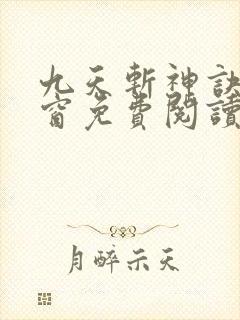 九天斬神訣
窗免費閱讀
月醉示天